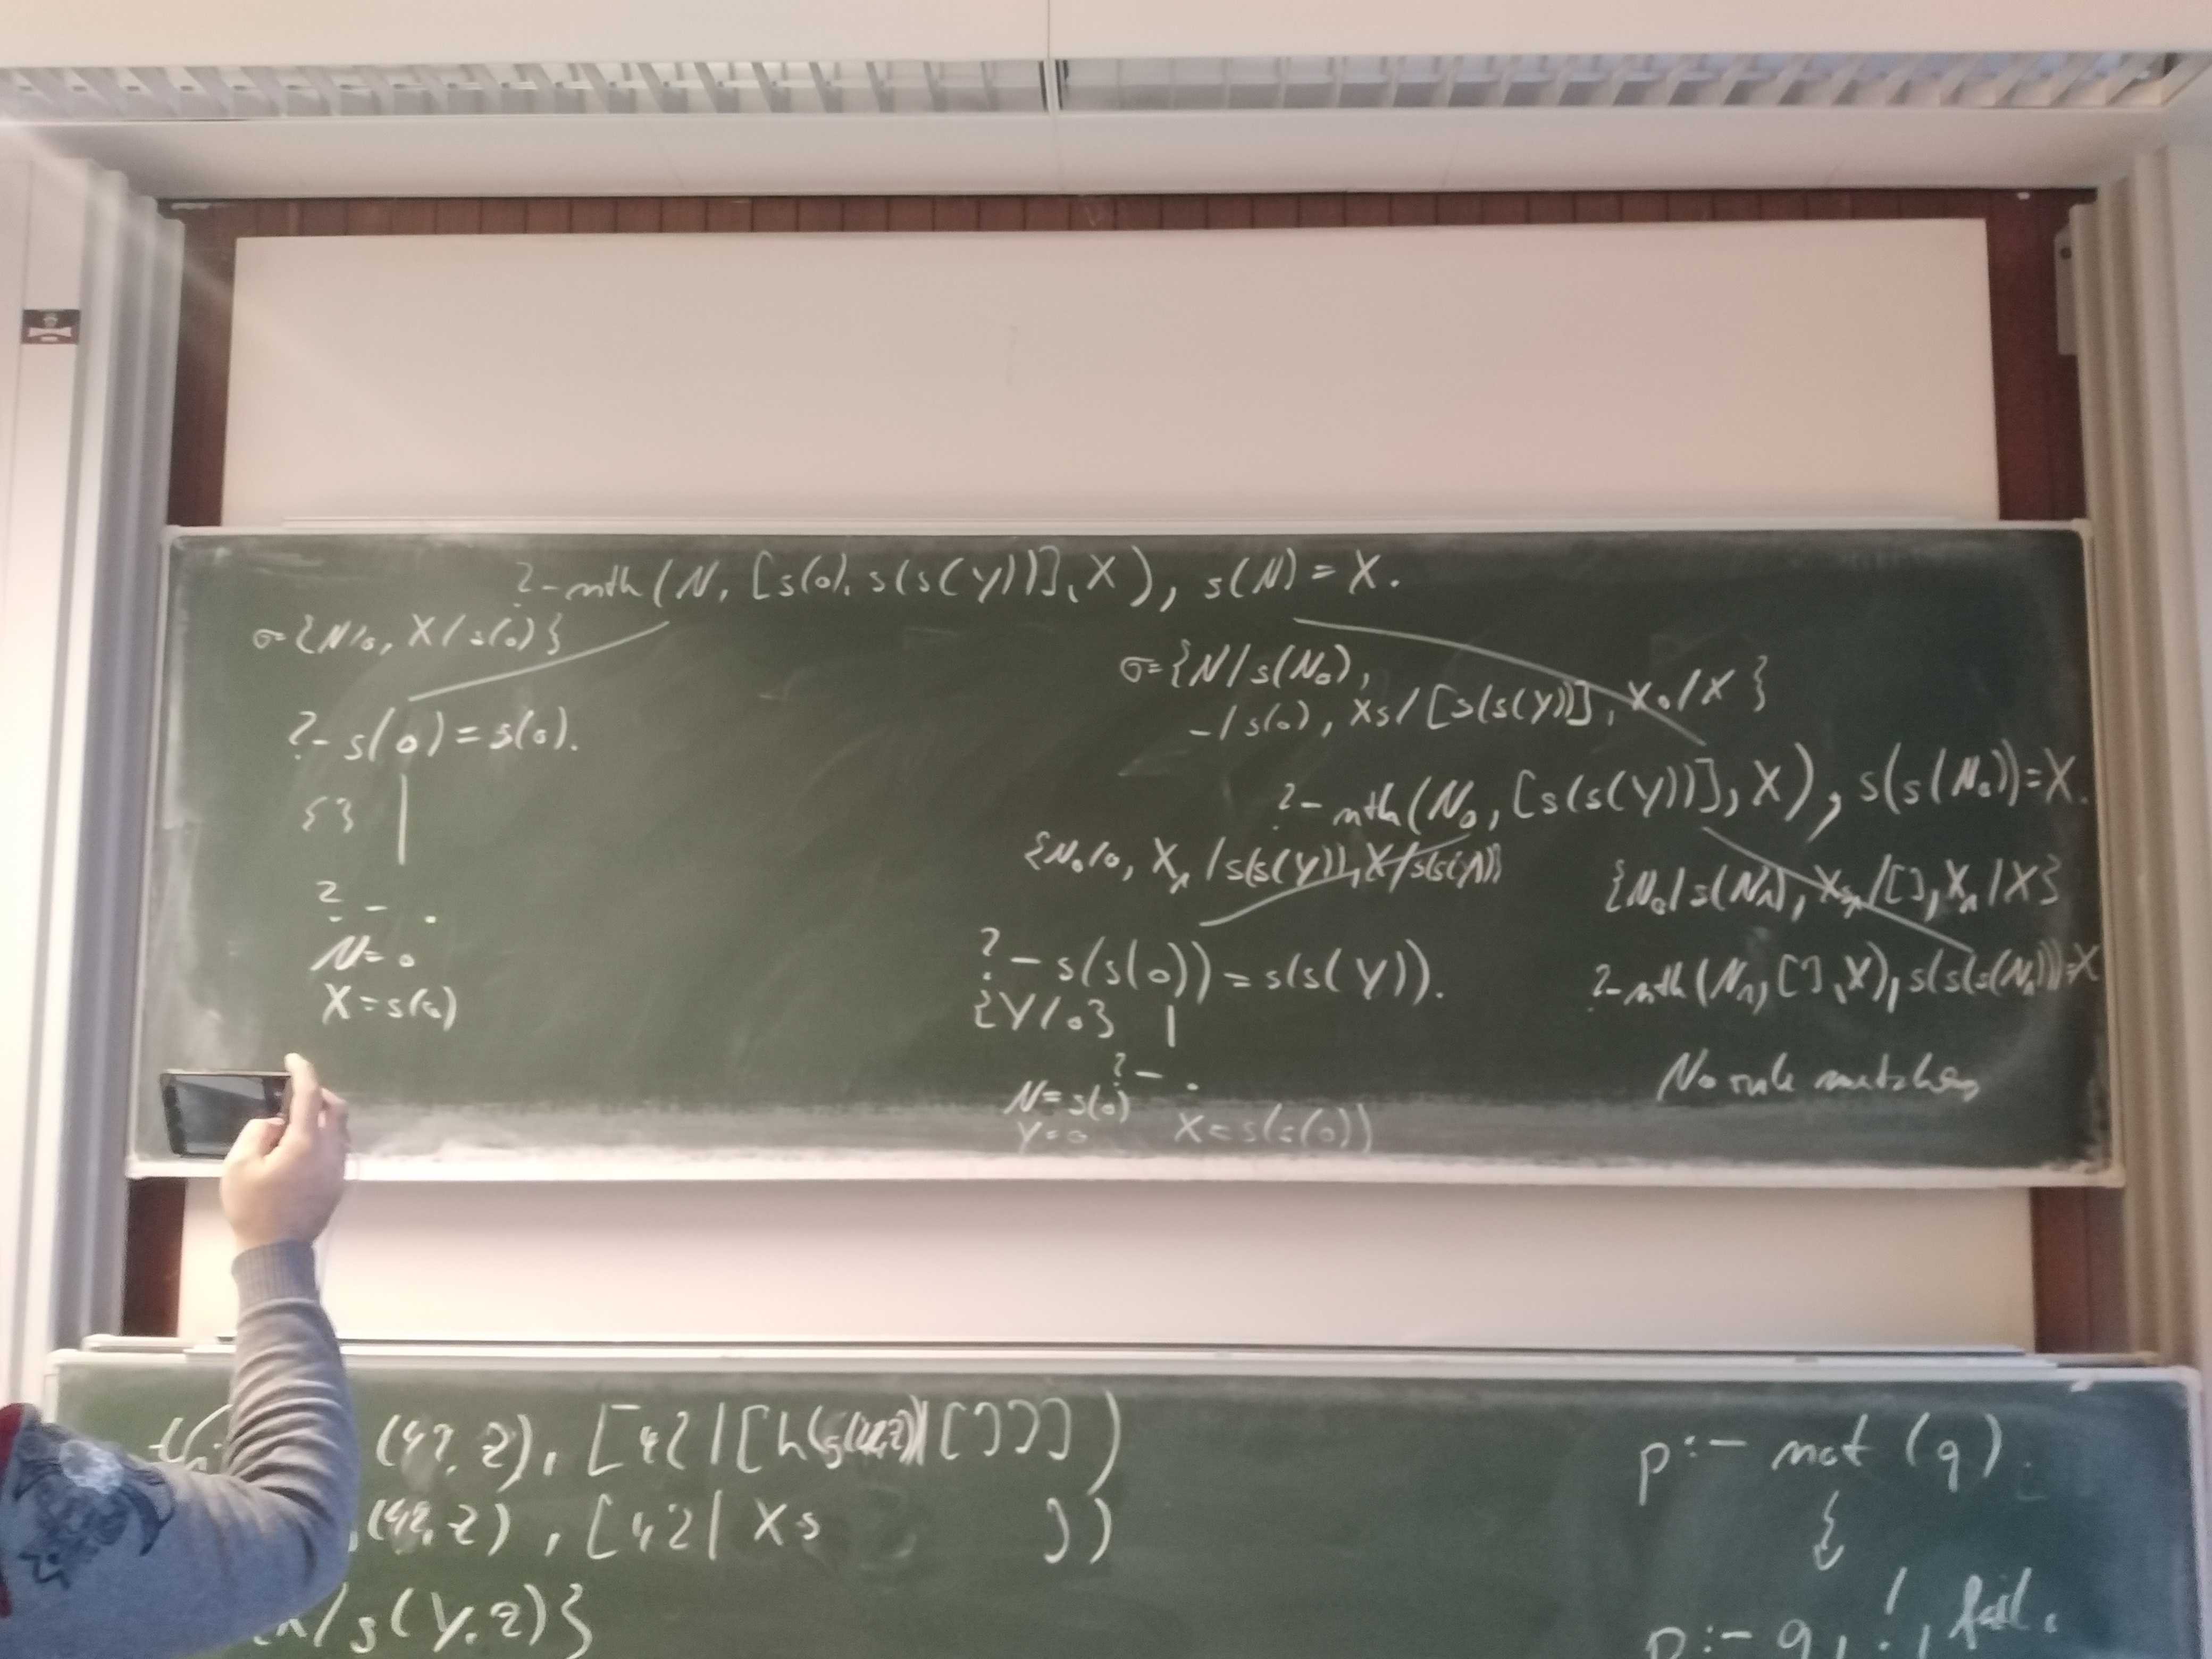 ?- nth(N, [s(0), s(s(Y))], X), s(N) = X.
σ={N/0, X/s(0)}
?- s(0) = s(0).
{}
?- .
N=0
X=s(0)
σ={N/s(N₀),
-/s(0), Xs/[s(s(Y))], X₀/X}
?- nth(N₀, [s(s(Y))], X), s(s(N₀))=X.
{N₀/0, X₁/s(s(Y)), X/s(s(Y))}
?- s(s(0)) = s(s(Y)).
{Y/0}
?- .
N=s(0)
Y=0 X=s(s(0))
{N₀/s(N₁), Xs₁/[], X₁/X}
?- nth(N₁, [], X), s(s(s(N₁)))=X
No rule matches
(42, z), [42|[h(g(42,z))|[]]])
(42, z), [42| Xs ])
X/g(Y, z)}
p :- not (q).
p :- q, !, fail.